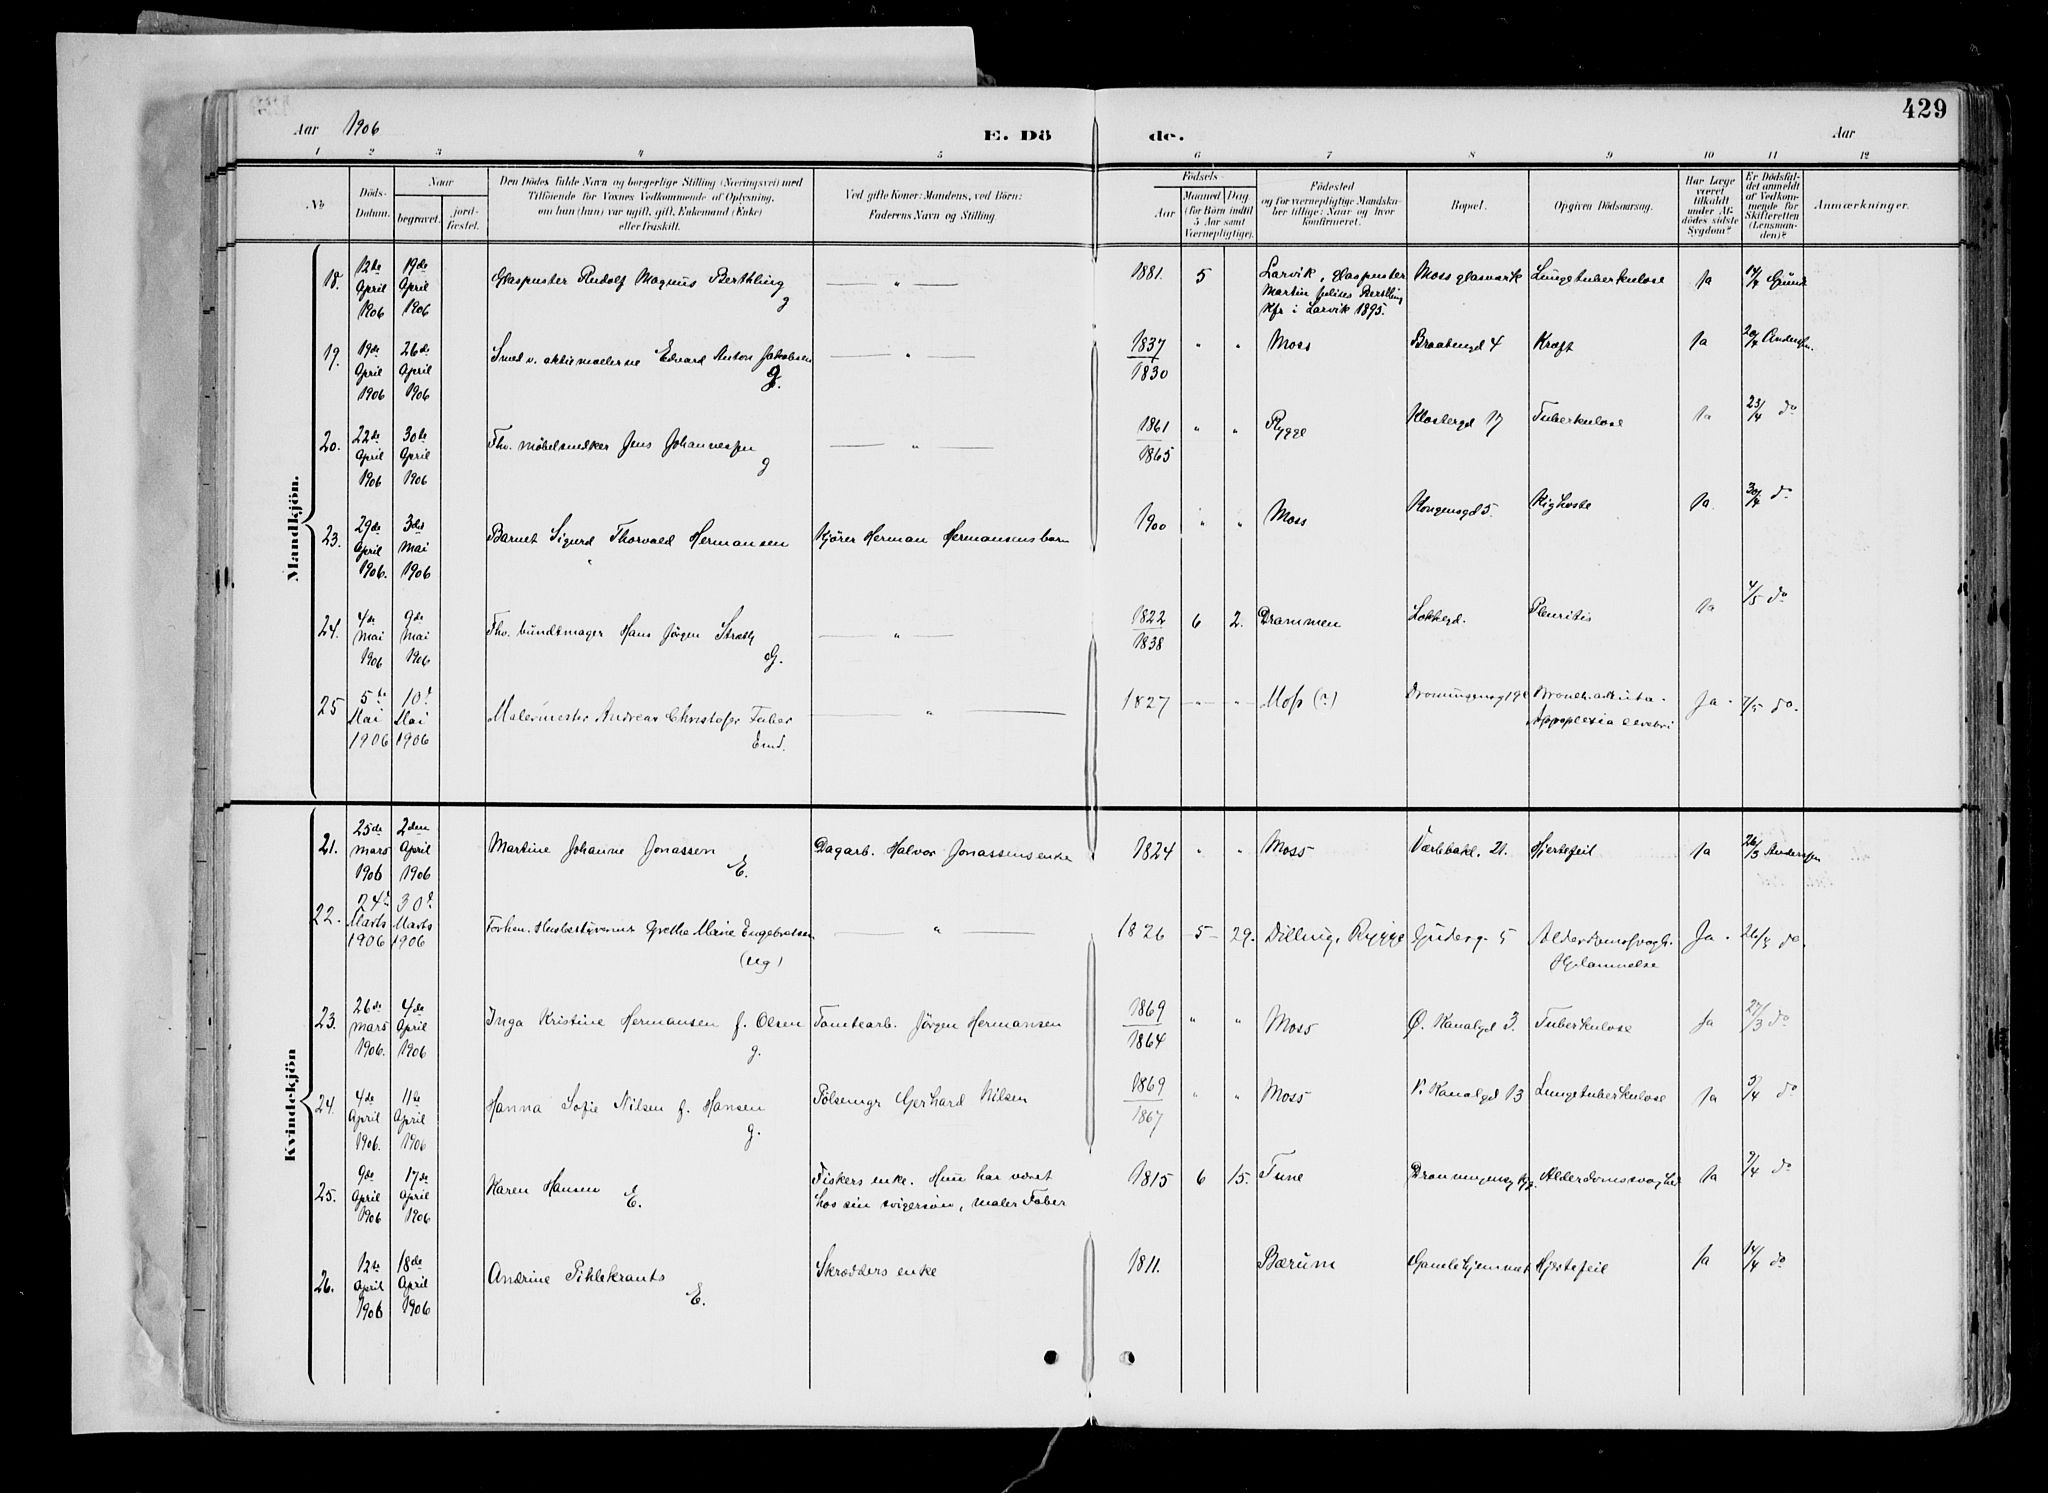 429
Aar 1906
E. Döde.
Aar
1 2 3 4 5 6 7 8 9 10 11 12
№
Döds-Datum.
Naar
begravet.
jord-fæstet.
Den Dödes fulde Navn og borgerlige Stilling (Næringsvei) med
Tilföiende for Voxnes Vedkommende af Oplysning,
om hun (hun) var ugift, gift, Enkemand (Enke)
eller fraskilt.
Ved gifte Koner: Mandens, ved Börn:
Faderens Navn og Stilling.
Födsels-
Aar
Maaned
Dag
(for Börn indtil
5 Aar samt
Værnepligtige).
Födested
og for værnepligtige Mandska-
ber tillige: Naar og hvor
konfirmeret.
Bopæl.
Opgiven Dödsaarsag.
Har Læge
været
tilkaldt
under Af-
dödes sidste
Sygdom?
Er Dödsfal-
det anmeldt
af Vedkom-
mende for
Skifteretten
(Lensman-
den)?
Anmærkninger.
Mandkjön.
18. 12te April 1906 19de April 1906 Glaspuster Rudolf Magnus Berthling g — " — 1881. 5 Larvik, glaspuster Martin Berthling Kfr i Larvik 1895. Moss glasværk Lungetuberkulose Ja 17/4
19. 19de April 1906 26de April 1906 Smed v. aktiemøllerne Edvard Anton Jakobsen g. — " — 1837/1830 " " Moss Braatengd 4 Kræft Ja 20/4 Andersen.
20. 22de April 1906 30te April 1906 Fhv. Møbelsnedker Jens Johannessen g — " — 1861/1865 " " Rygge Klostergd 17 Tuberkulose Ja 23/4 do
23. 29de April 1906. 3die Mai 1906 Barnet Sigurd Thorvald Hermansen Kjører Herman Hermansens barn 1900 " " Moss Kongensgd 5. Kighoste Ja. 30/4 do
24. 4de Mai 1906 9de Mai 1906 Fhv. bundtmager Hans Jørgen G. — " — 1822/1838 6 2. Drammen Pleuritis Ja 4/5 do
25 5te Mai 1906 10d Mai 1906 Malermester Andreas Christofer Faber Emd. — " — 1827 " " Moss (?) Dronningensg 19e Bronch. acuta - Appoplexia cerebri Ja - 7/5 do.
Kvindekjön
21. 25de mars 1906 2den April 1906 Martine Johanne Jonassen E. Dagarb. Halvor Jonassens enke 1824 " " Moss Værlebakk. 21. Hjertefeil Ja 26/3 Andersen
22. 24d Marts 1906 30d Marts 1906 Forhen. Husbestyrerinde Grethe Marie Engebretsen (ug) — " — 1826 5 - 29. Dilling, Rygge Gjuderg. 5 Alderdomssvagh. Hjælammelse Ja - 26/3 do.
23. 26de mars 1906. 4de April 1906 Inga Kristine Hermansen f. Olsen g. Tomtearb. Jørgen Hermansen 1869/1864 " " Moss Ø. Kanalgd 3. Tuberkulose Ja 27/3 do
24. 4de April 1906. 11te April 1906 Hanna Sofie Nilsen f. Hansen g. Pølsemgr Gerhard Nilsen 1869/1867 " " Moss V. Kanalgd 13 Lungetuberkulose Ja 5/4 do
25. 9de April 1906 17de April 1906 Karen Hansen E. Fiskers enke. Hun har været hos sin svigersøn, maler Faber 1815 6 15. Tune Alderdomssvaghed Ja 9/4 do
26. 12te April 1906 18de April 1906 Andrine Pihlekrants E. Skrædders enke 1811. Bærum Gamlehjemmet Hjertefeil Ja 14/4 do